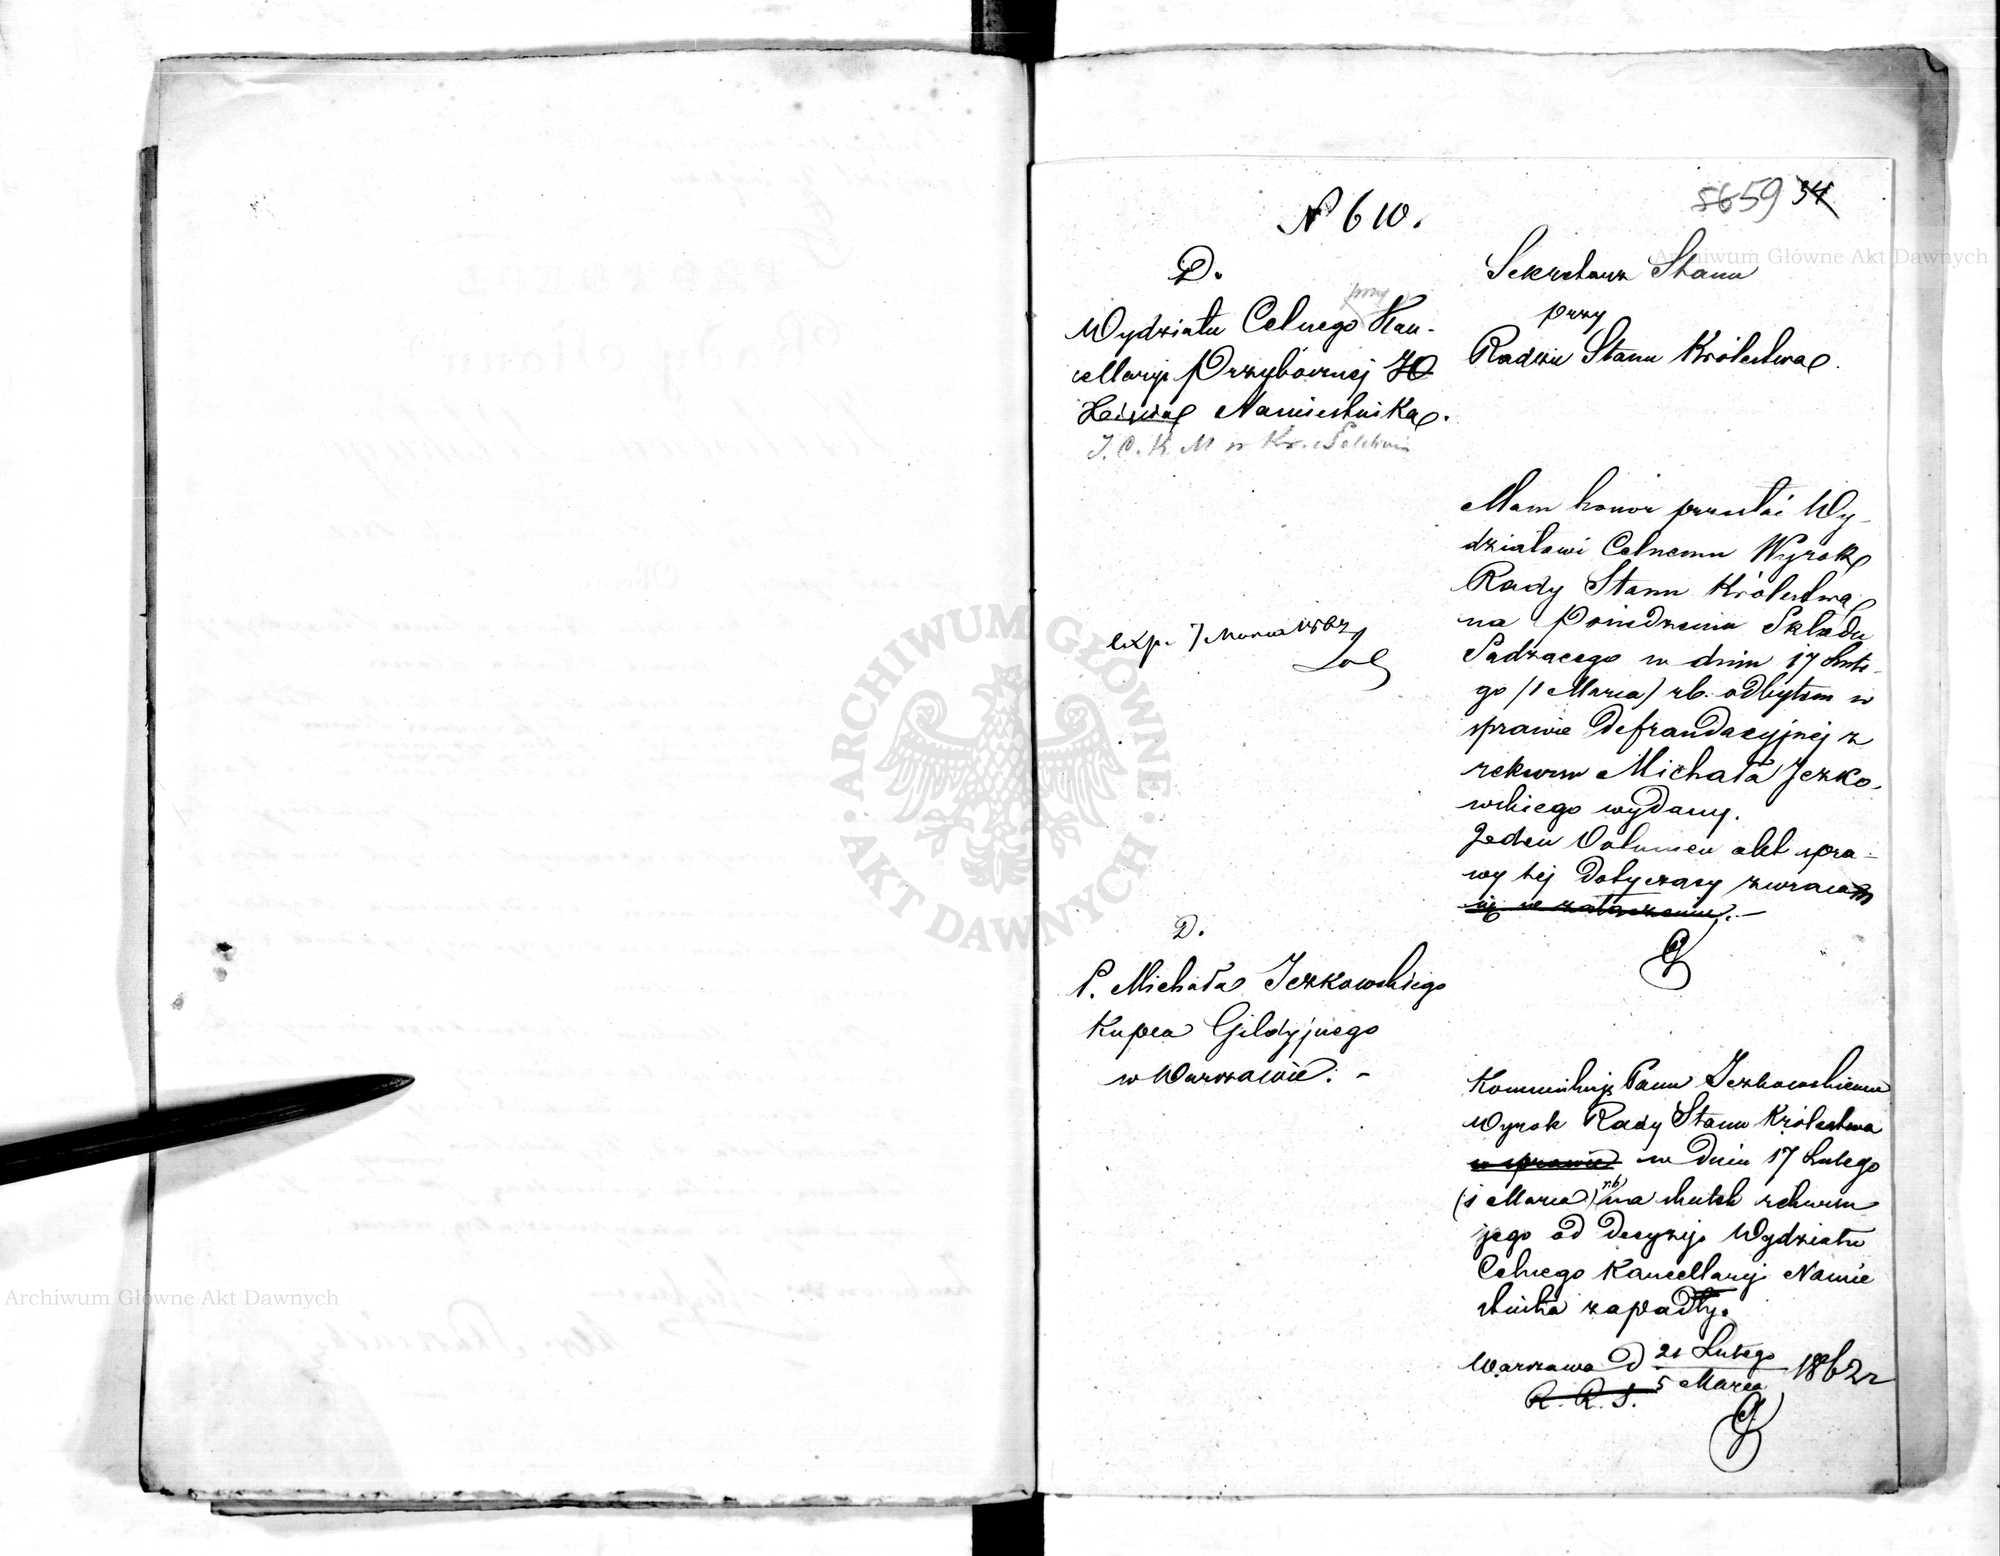 5659 34
N 610.
D.
przy
Wydziału Celnego Kan-
cellaryi Przybocznej JO
Xięcia Namiestnika.
J. C. K. M w Kr. Polskim
Sekretarz Stanu
przy
Radzie Stanu Królestwa.
Mam honor przesłać Wy-
działowi Celnemu Wyrok
Rady Stanu Królestwa
na Posiedzeniu Składu
Sądzącego w dniu 17 Lute-
go (1 Marca) rb. odbytem w
sprawie defraudacyjnej z
rekursu Michała Jezko-
wskiego wydany.
Jeden Volumen akt spra-
wy tej dotyczący zwracam
się w załączeniu.-
exp. 7 Marca 1862
D.
P. Michała Jezkowskiego
Kupca Gildyjnego
w Warszawie. -
Kommunikuję Panu Jezkowskiemu
Wyrok Rady Stanu Królestwa
w sprawie w dniu 17 Lutego
(1 Marca) rb na skutek rekursu
jego od decyzyi Wydziału
Celnego Kancellaryi Namie
stnika zapadły.
Warszawa d 21 Lutego
5 Marca 1862 r
R. R. S.
ARCHIWUM GŁÓWNE AKT DAWNYCH
Archiwum Główne Akt Dawnych
Archiwum Główne Akt Dawnych